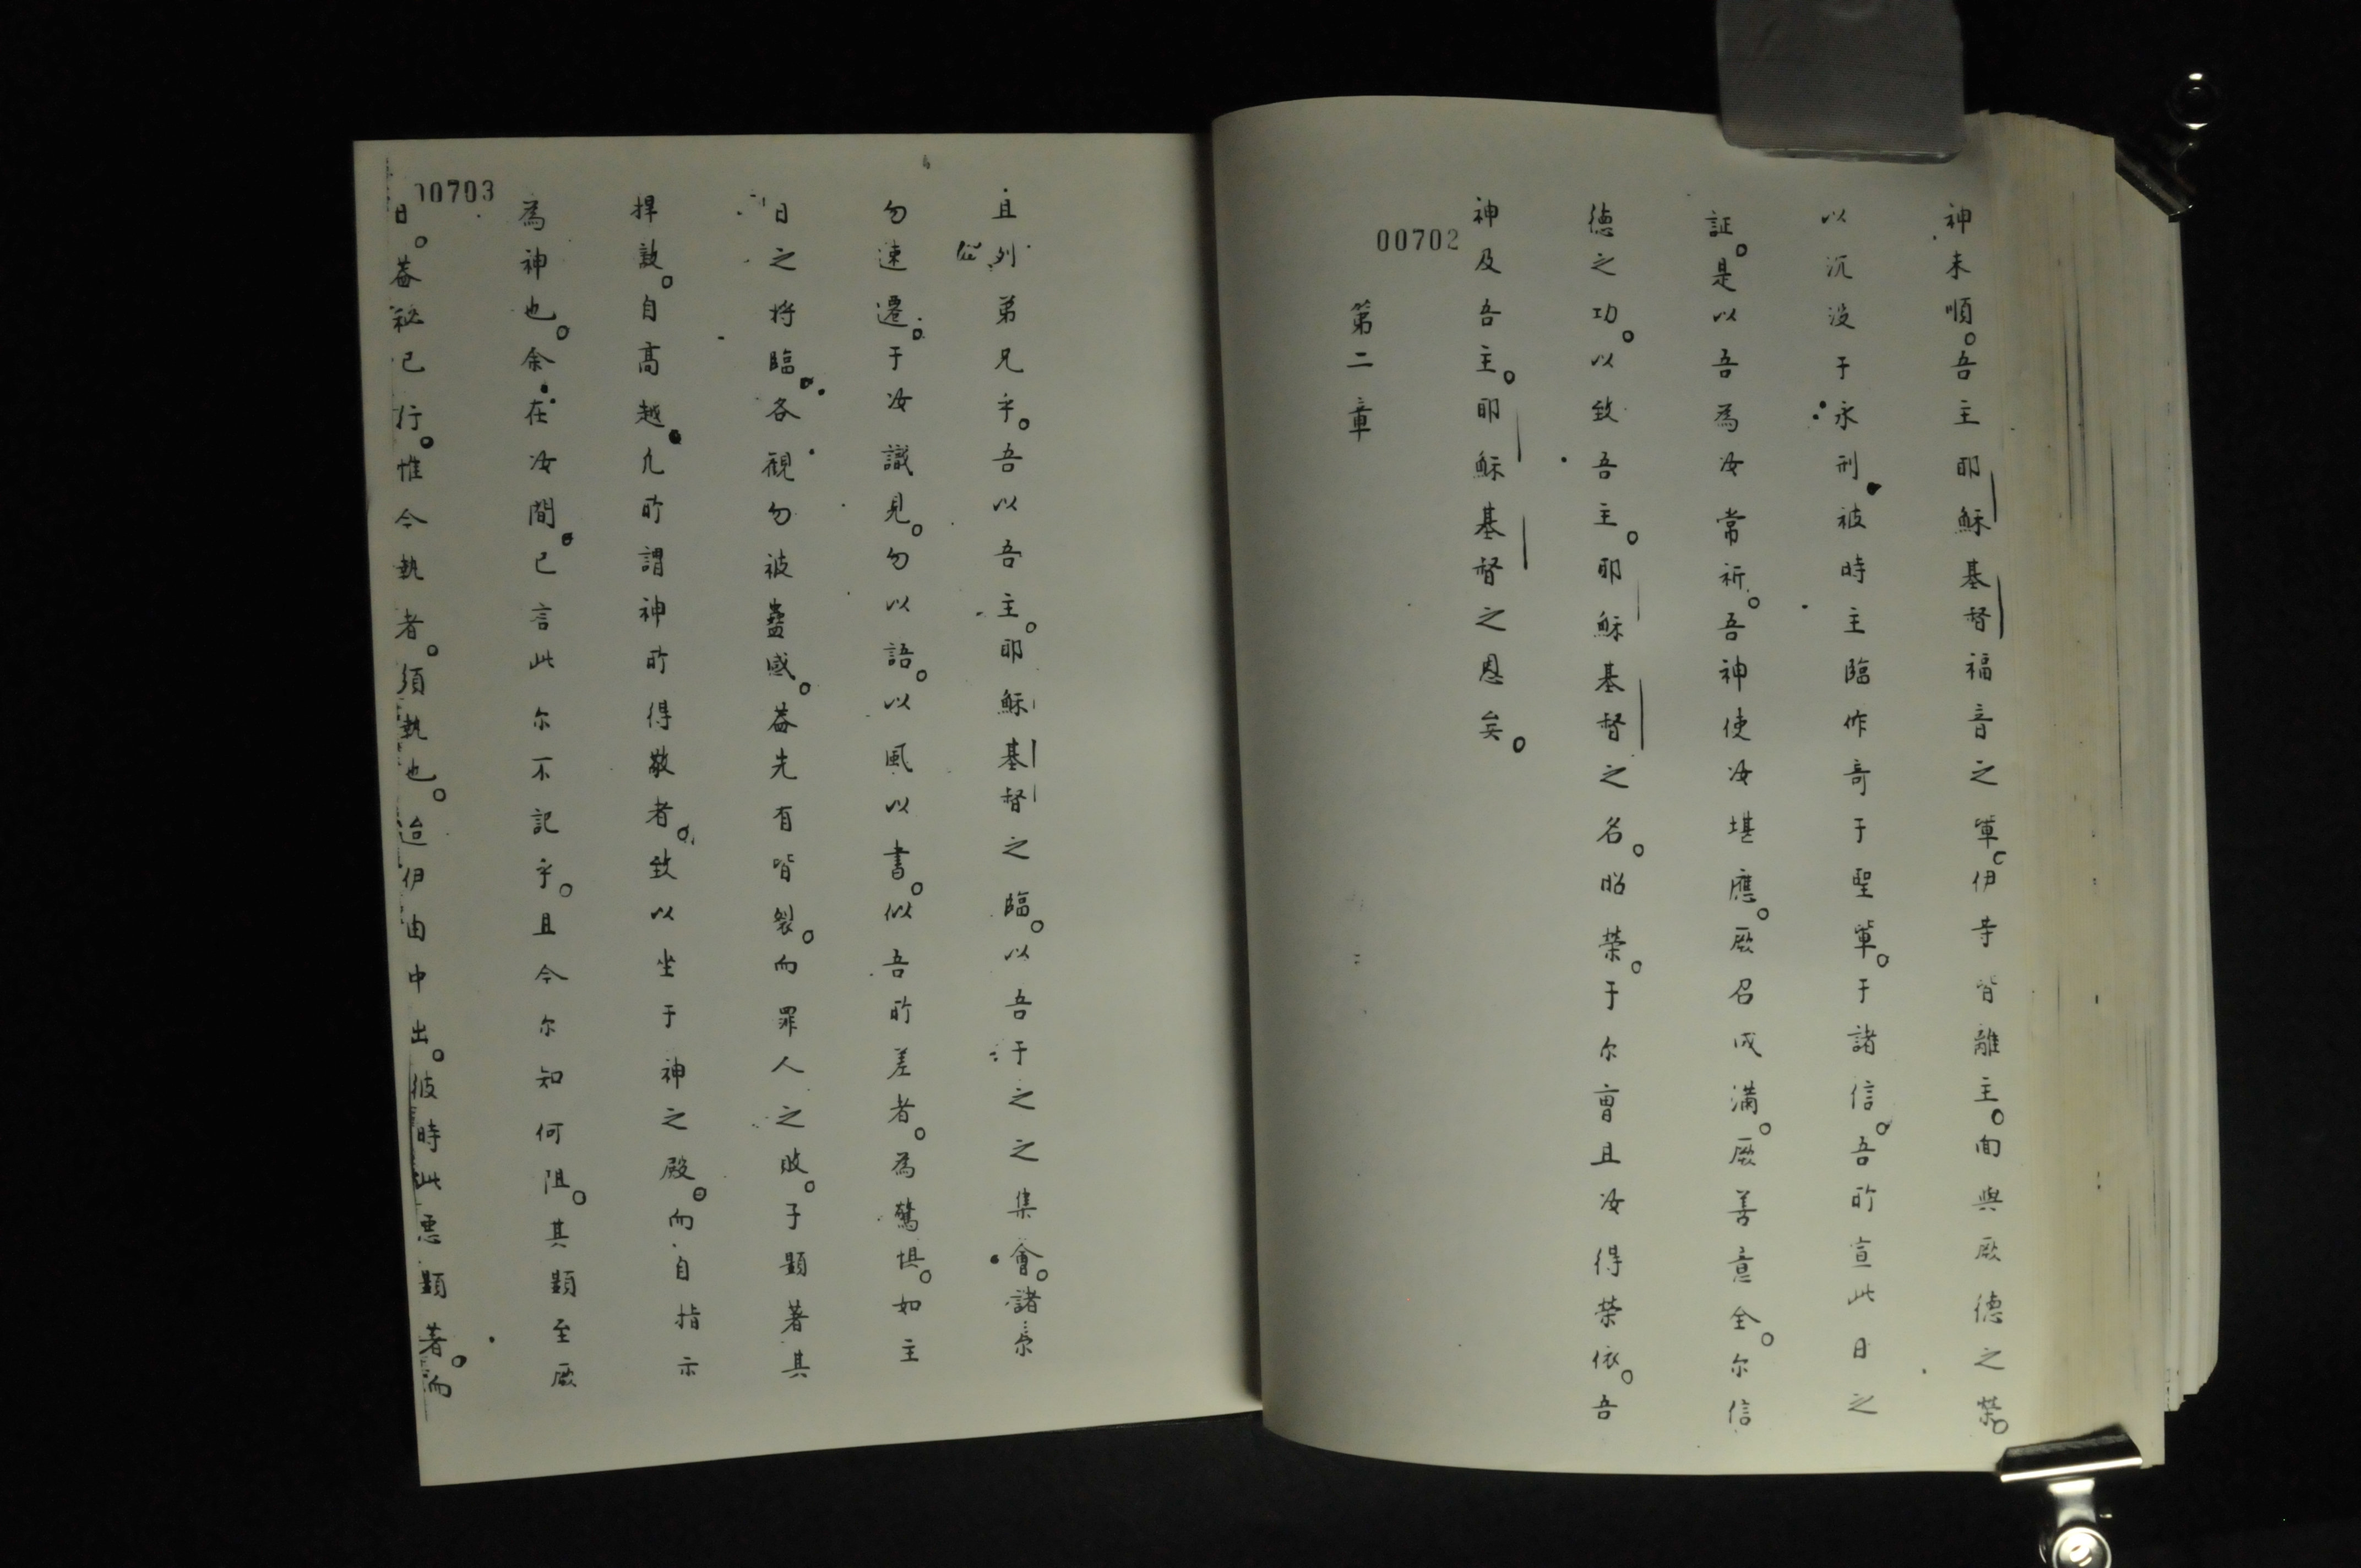 神未順。吾主耶穌基督福音之軍。伊等皆離主。面與厥德之榮。
以沉没于永刑。被時主臨作奇于聖軍。于諸信。吾所宣此日之
証。是以吾為汝常祈。吾神使汝堪應。厥召成滿。厥善意全。尔信
德之功。以致吾主。耶穌基督之名。昭榮。于尔曹且汝得榮依。吾
神及吾主。耶穌基督之恩矣。
00702
第二章
且列弟兄乎。吾以吾主。耶穌基督之臨。以吾于之之集會。諸
勿速遷。于汝識見。勿以語。以風以書。似吾所差者。為驚惧。如主
日之将臨。各觀勿被蠱惑。葢先有皆裂。而罪人之敗。子顕著其
捍敵。自高越凢所謂神所得敬者。致以坐于神之殿。而自指示
為神也。余在汝間。已言此尔不記乎。且今尔知何阻。其顕至厥
00703
日。葢秘已行。惟今執者。須執也。迨伊由中出。彼時此悪顕著。而